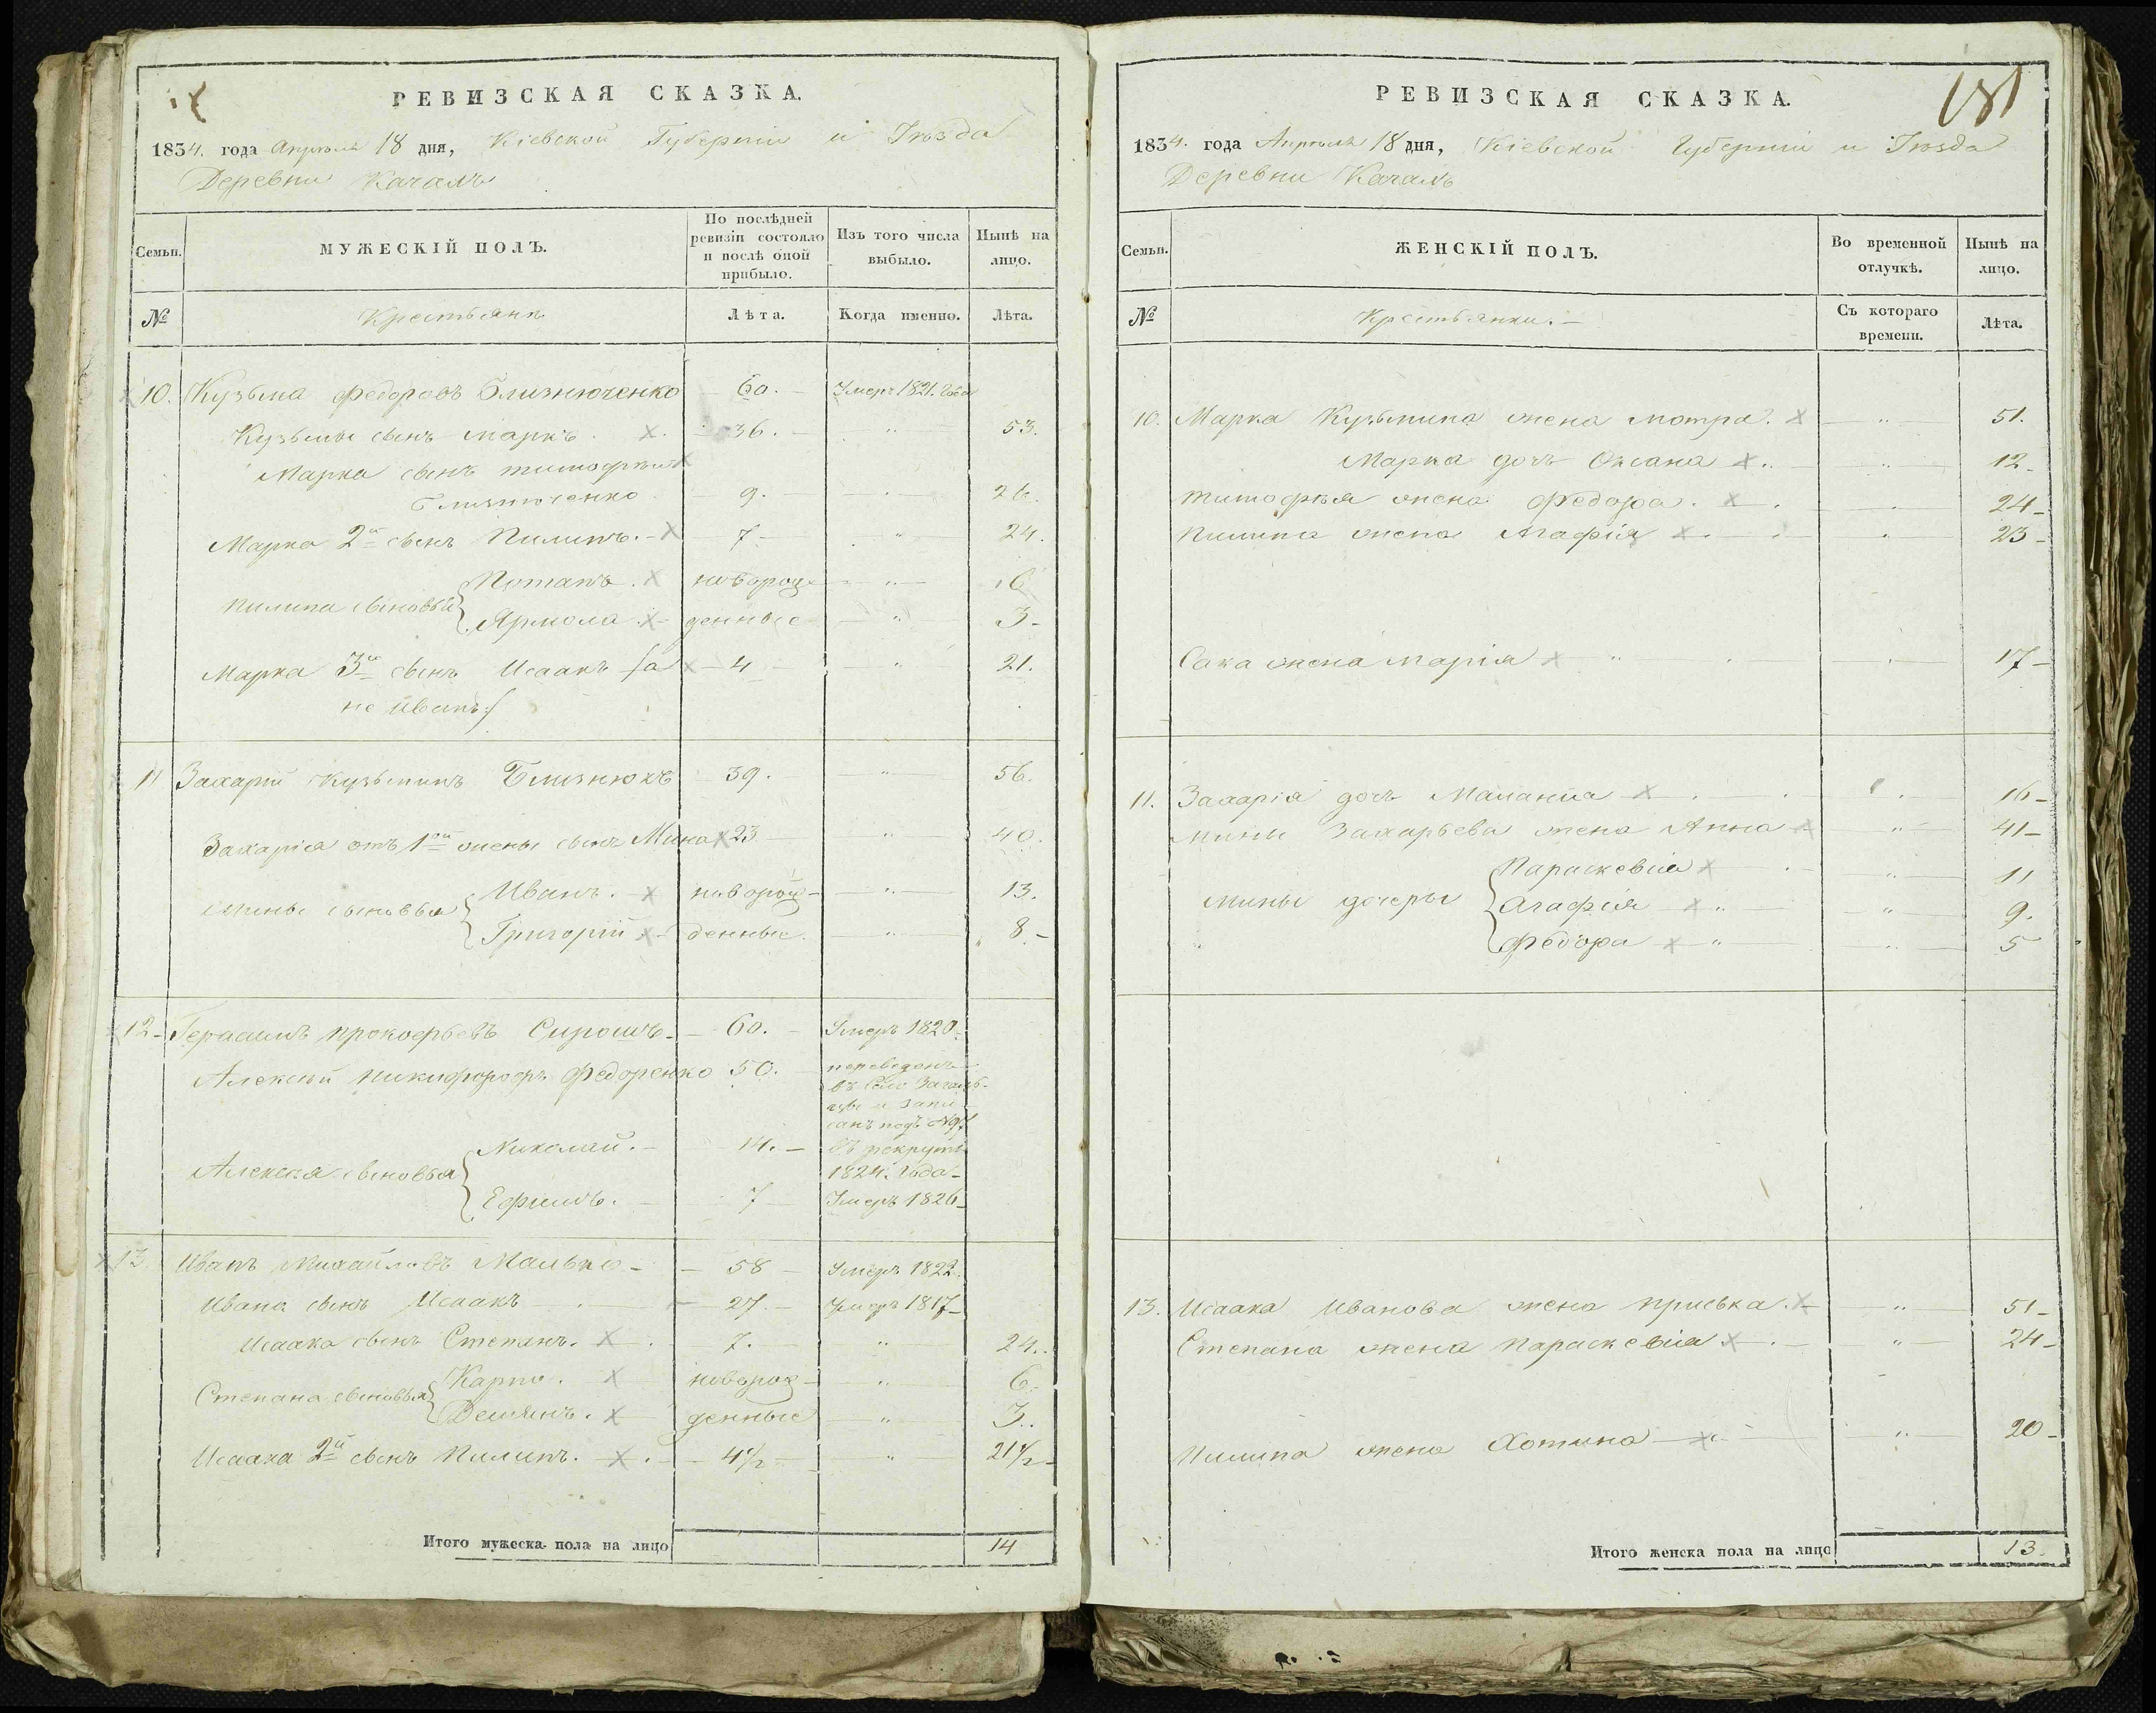 РЕВИЗСКАЯ СКАЗКА.
1834. года Апрѣля 18 дня, Кіевской Губерніи и Уѣзда
Деревни Качалъ
Семьи.
МУЖЕСКІЙ ПОЛЪ.
По послѣдней ревизіи состояло и послѣ оной прибыло.
Изъ того числа выбыло.
Нынѣ на лицо.
№
Крестьянъ
Лѣта.
Когда именно.
Лѣта.
10. Кузьма Федоровъ Близнюченко 60. Умеръ 1821. Года
Кузьмы сынъ Марко. 36. " 53.
Марка сынъ Тимофѣй
Близнюченко 9. " 26.
Марка 2й сынъ Пилипъ. 7 " 24.
Пилипа сыновья { Потапъ. новорож- " 6
Ярмола. денные " 3
Марка 3й сынъ Исаакъ /а 4 " 21.
не Иванъ:/
11 Захарій Кузьминъ Близнюкъ 39. " 56.
Захарія отъ 1ой жены сынъ Мина 23 " 40.
Мины сыновья { Иванъ. новорож- " 13.
Григорій денные. " 8.
12 Герасимъ Прокофьевъ Сирошъ 60. Умеръ 1820.
Алексѣй Никифоровъ Федоренко 50. переведенъ
въ Село
и запи-
санъ подъ №
Алексѣя сыновья { Николай. 14. въ рекруты
1824. Года
Ефимъ. 7 Умеръ 1826
13. Иванъ Михайловъ Малько 58 Умеръ 1822.
Ивана сынъ Исаакъ 27. Умеръ 1817
Исаака сынъ Степанъ. 7. " 24.
Степана сыновья { Карпо. новорож- " 6.
Демянъ. денные " 3.
Исаака 2й сынъ Пилипъ. 4½ " 21½
Итого мужеска пола на лицо 14
181
РЕВИЗСКАЯ СКАЗКА.
1834. года Апрѣля 18 дня, Кіевской Губерніи и Уѣзда
Деревни Качалъ
Семьи.
ЖЕНСКІЙ ПОЛЪ.
Во временной отлучкѣ.
Нынѣ на лицо.
№
Крестьянки.
Съ котораго времени.
Лѣта.
10. Марка Кузьмина жена Мотра. " 51.
Марка дочь Оксана " 12
Тимофѣя жена Федора. " 24
Пилипа жена Агафія " 23
Сака жена Марія " 17
11. Захарія дочь Маланія " 16
Мины Захарьева жена Анна " 41
Мины дочеры { Параскевія " 11
Агафія " 9.
Федора " 5
13. Исаака Иванова жена Приська. " 51
Степана жена Параскевія " 24
Пилипа жена Хотина " 20
Итого женска пола на лицо 13.